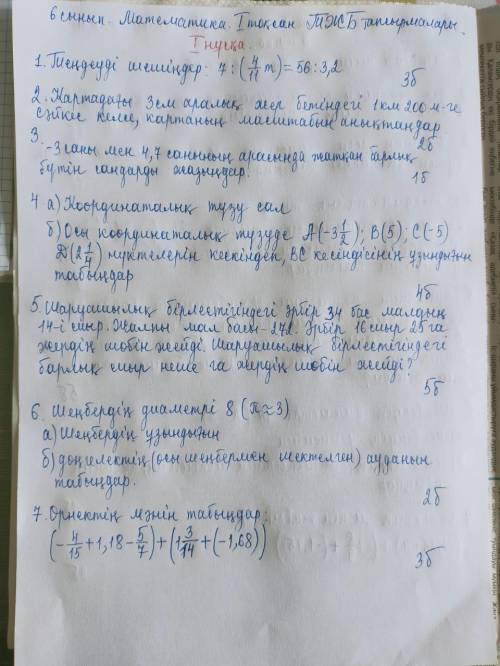 6 сынып. Математика. I тоқсан ТЖБ тапсырмалары.
I нұсқа.
1. Теңдеуді шешіңдер: 7 : (4/11 m) = 56 : 3,2
3б
2. Картадағы 3 см аралық жер бетіндегі 1 км 200 м-ге
сәйкес келсе, картаның масштабын анықтаңдар
2б
3.
-3 саны мен 4,7 санының арасында жатқан барлық
бүтін сандарды жазыңдар.
1б
4 а) Координаталық түзу сал
б) Осы координаталық түзуде A(-3 1/2); B(5); C(-5)
D(2 1/4) нүктелерін кескіндеп, BC кесіндісінің ұзындығын
табыңдар
4б
5. Шаруашылық бірлестігіндегі әрбір 34 бас малдың
14-і сиыр. Жалпы мал басы - 272. Әрбір 16 сиыр 25 га
жердің шөбін жейді. Шаруашылық бірлестігіндегі
барлық сиыр неше га жердің шөбін жейді?
5б
6. Шеңбердің диаметрі 8 (π≈3)
а) Шеңбердің ұзындығын
б) дөңгелектің (осы шеңбермен шектелген) ауданын
табыңдар.
2б
7. Өрнектің мәнін табыңдар:
(-4/15 + 1,18 - 5/7) + (1 3/14 + (-1,68))
3б